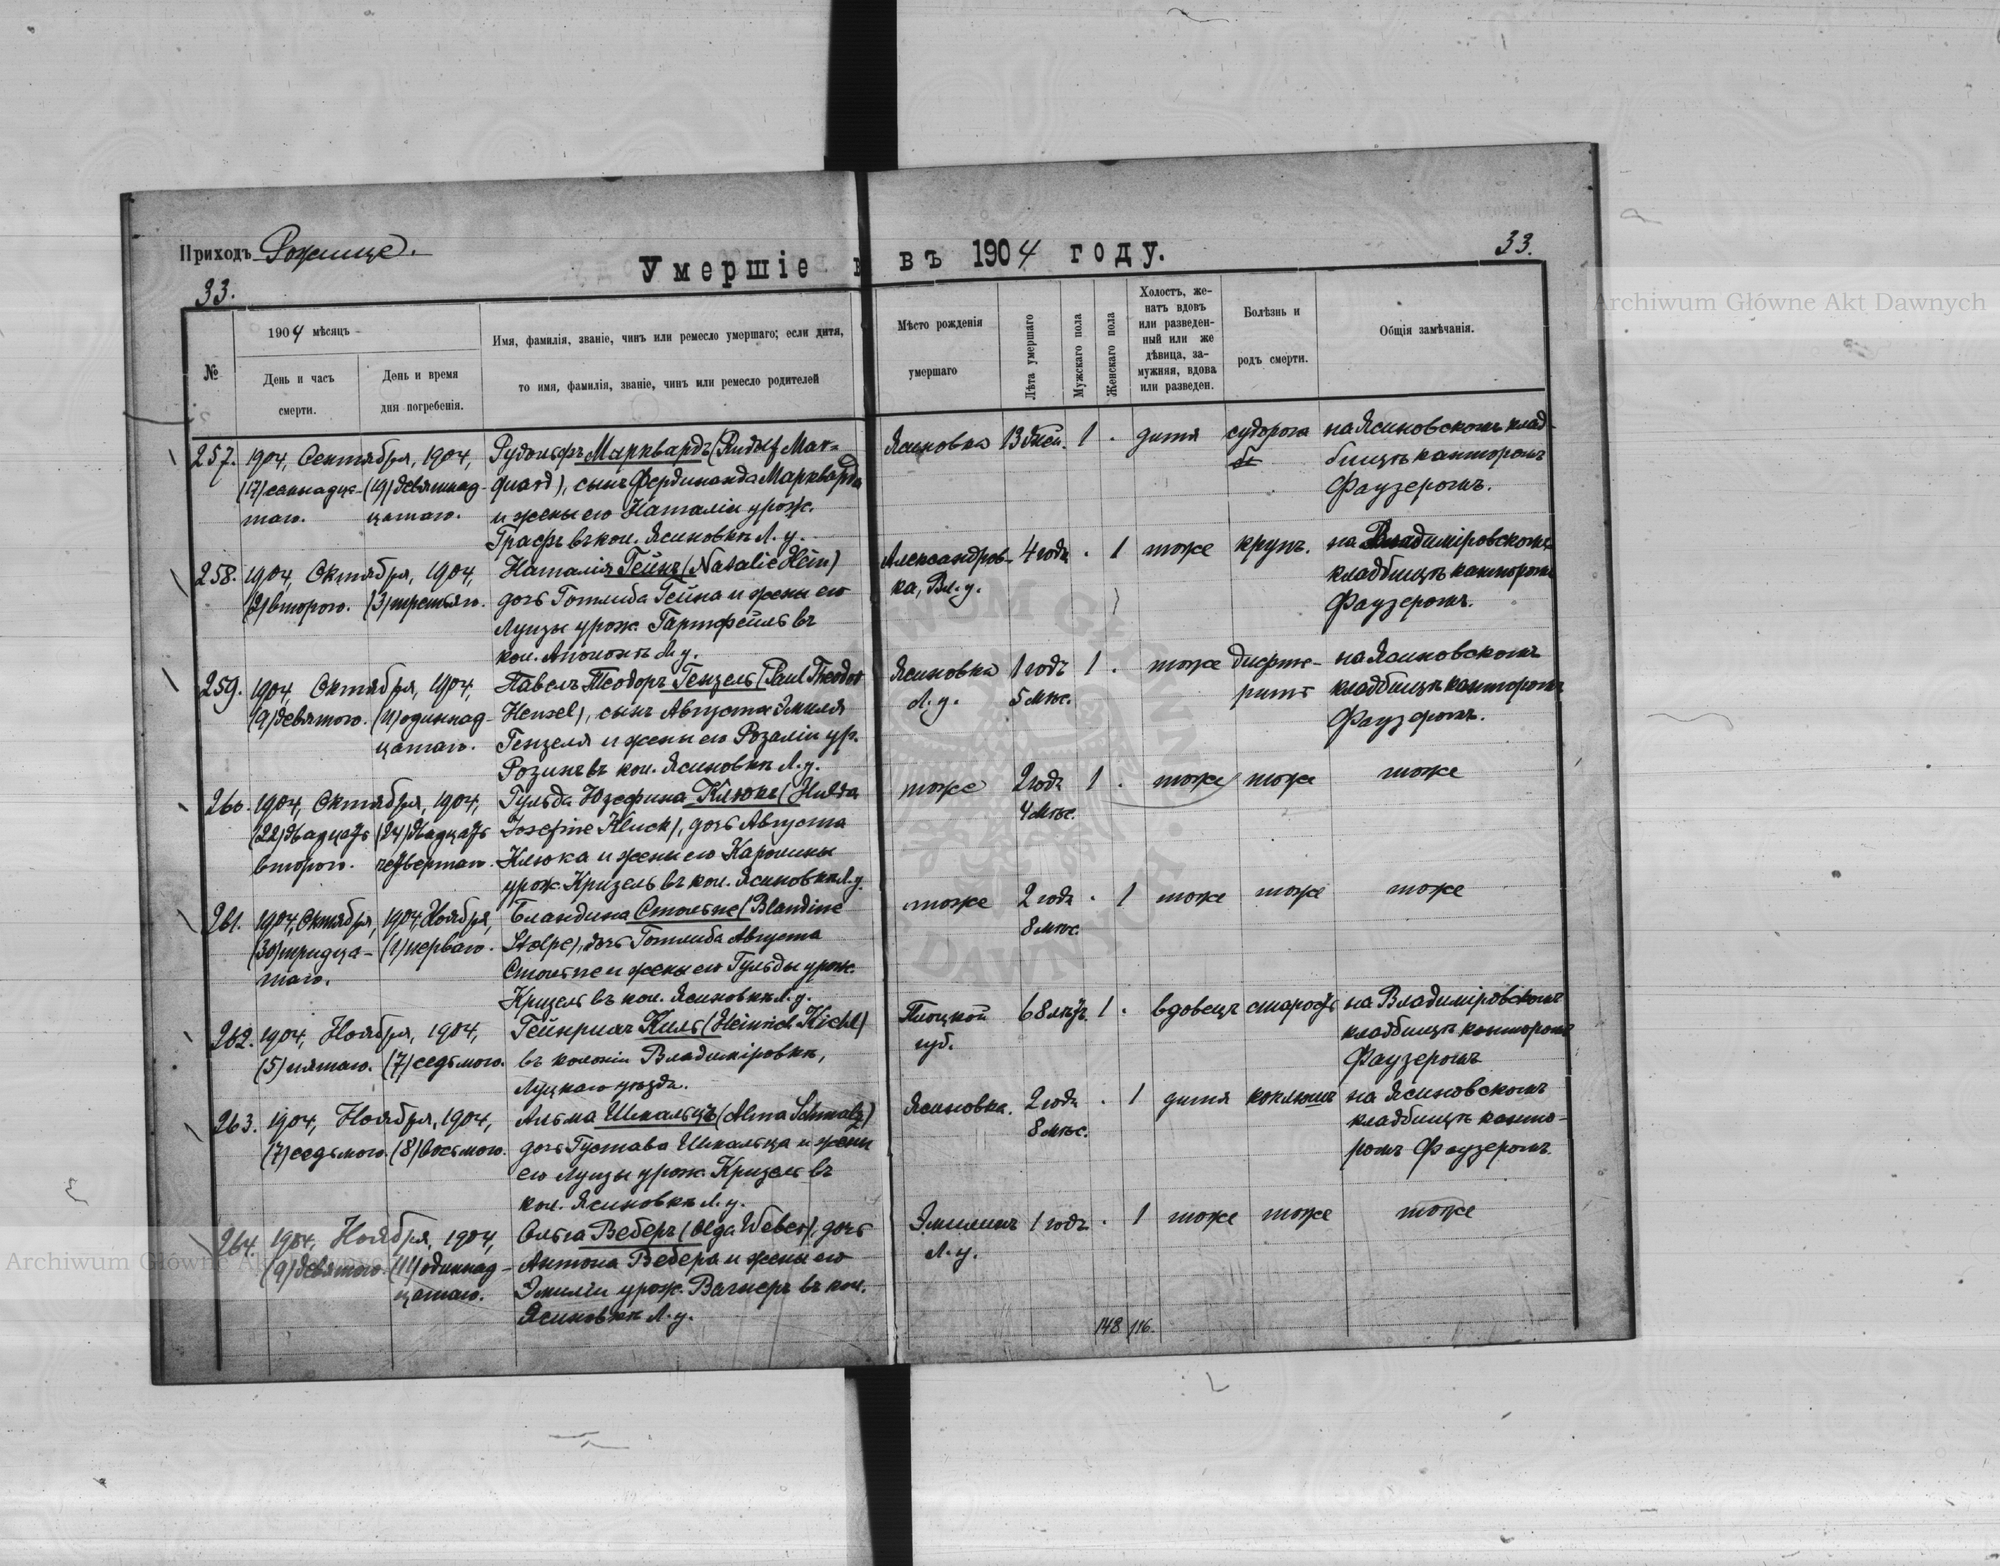 Приходъ Рожище.
33.
33.
Умершіе въ 1904 году.
№
1904 мѣсяцъ
День и часъ смерти.
День и время дня погребенія.
Имя, фамилія, званіе, чинъ или ремесло умершаго; если дитя,
то имя, фамилія, званіе, чинъ или ремесло родителей
Мѣсто рожденія
умершаго
Лѣта умершаго
Мужскаго пола
Женскаго пола
Холостъ, же-
натъ вдовъ
или разведен-
ный или же
дѣвица, за-
мужняя, вдова
или разведен.
Болѣзнь и
родъ смерти.
Общія замѣчанія.
257. 1904, Сентября, 1904, Рудольфъ Марквардъ (Rudolf Mar- Ясиновка 13 дней. 1 . дитя судорога на Ясиновскомъ клад-
(17) семнадца- (19) девятнад- quard), сынъ Фердинанда Маркварда бищѣ канторомъ
таго. цатаго. и жены его Наталіи урож. Фаузеромъ.
Графъ въ кол. Ясиновкѣ Л. у.
258. 1904, Октября, 1904, Наталія Гейнъ (Natalie Hein) Александров- 4 года . 1 тоже крупъ. на Владиміровскомъ
(2) второго. (3) третьяго. дочь Готлиба Гейна и жены его ка, Вл. у. кладбищѣ канторомъ
Луизы урож. Гартфейль въ Фаузеромъ.
кол. Л. у.
259. 1904, Октября, 1904, Павелъ Теодоръ Гензель (Paul Theodor Ясиновка 1 годъ 1 . тоже дифте- на Ясиновскомъ
(9) девятого. (11) одиннад- Hensel), сынъ Августа Эмиля Л. у. 5 мѣс. ритъ кладбищѣ канторомъ
цатаго. Гензеля и жены его Розаліи ур. Фаузеромъ.
Розинъ въ кол. Ясиновкѣ Л. у.
260. 1904, Октября, 1904, Гульда Юзефина Клюкъ (Hulda тоже 2 года 1 . тоже тоже тоже
(22) двадцать (24) двадцать Josefine Kluck), дочь Августа 4 мѣс.
второго. четвертаго. Клюка и жены его Каролины
урож. Кризель въ кол. Ясиновкѣ Л. у.
261. 1904, Октября, 1904, Ноября, Бландина Стольпе (Blandine тоже 2 года . 1 тоже тоже тоже
(30) тридца- (1) перваго. Stolpe), дочь Готлиба Августа 8 мѣс.
таго. Стольпе и жены его Гульды урож.
Кризель въ кол. Ясиновкѣ Л. у.
262. 1904, Ноября, 1904, Гейнрихъ Киль (Heinrich Kiehl) Плоцкой 68 лѣтъ. 1 . вдовецъ старость на Владиміровскомъ
(5) пятаго. (7) седьмого. въ колоніи Владиміровкѣ, губ. кладбищѣ канторомъ
Луцкаго уѣзда. Фаузеромъ
263. 1904, Ноября, 1904, Альма Шмальцъ (Alma Schmalz) Ясиновка. 2 года . 1 дитя коклюшъ на Ясиновскомъ
(7) седьмого. (8) восьмого. дочь Густава Шмальца и жены 8 мѣс. кладбищѣ канто-
его Луизы урож. Кризель въ ромъ Фаузеромъ.
кол. Ясиновкѣ Л. у.
264. 1904, Ноября, 1904, Ольга Веберъ (Olga Weber), дочь Эмилинъ 1 годъ. . 1 тоже тоже тоже
(9) девятого. (11) одиннад- Антона Вебера и жены его Л. у.
цатаго. Эмиліи урож. Вагнеръ въ кол.
Ясиновкѣ Л. у.
148 116.
Archiwum Główne Akt Dawnych
Archiwum Główne Akt Dawnych